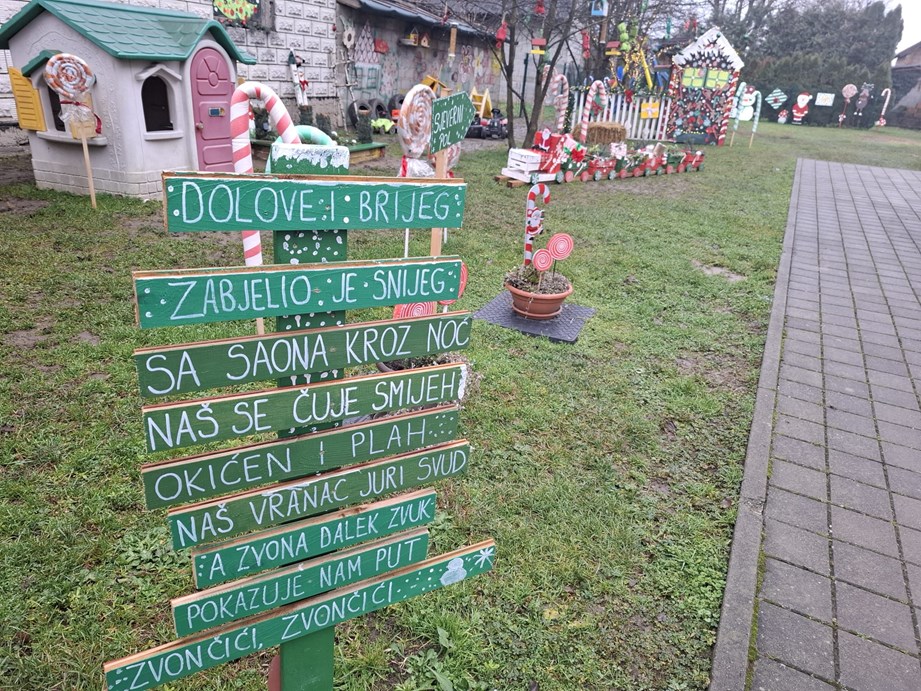 SJEVERNI
POL
DOLOVE I BRIJEG
ZABJELIO JE SNIJEG
SA SAONA KROZ NOĆ
NAŠ SE ČUJE SMIJEH
OKIĆEN I PLAH
NAŠ VRANAC JURI SVUD
A ZVONA DALEK ZVUK
POKAZUJE NAM PUT
ZVONČIĆI, ZVONČIĆI